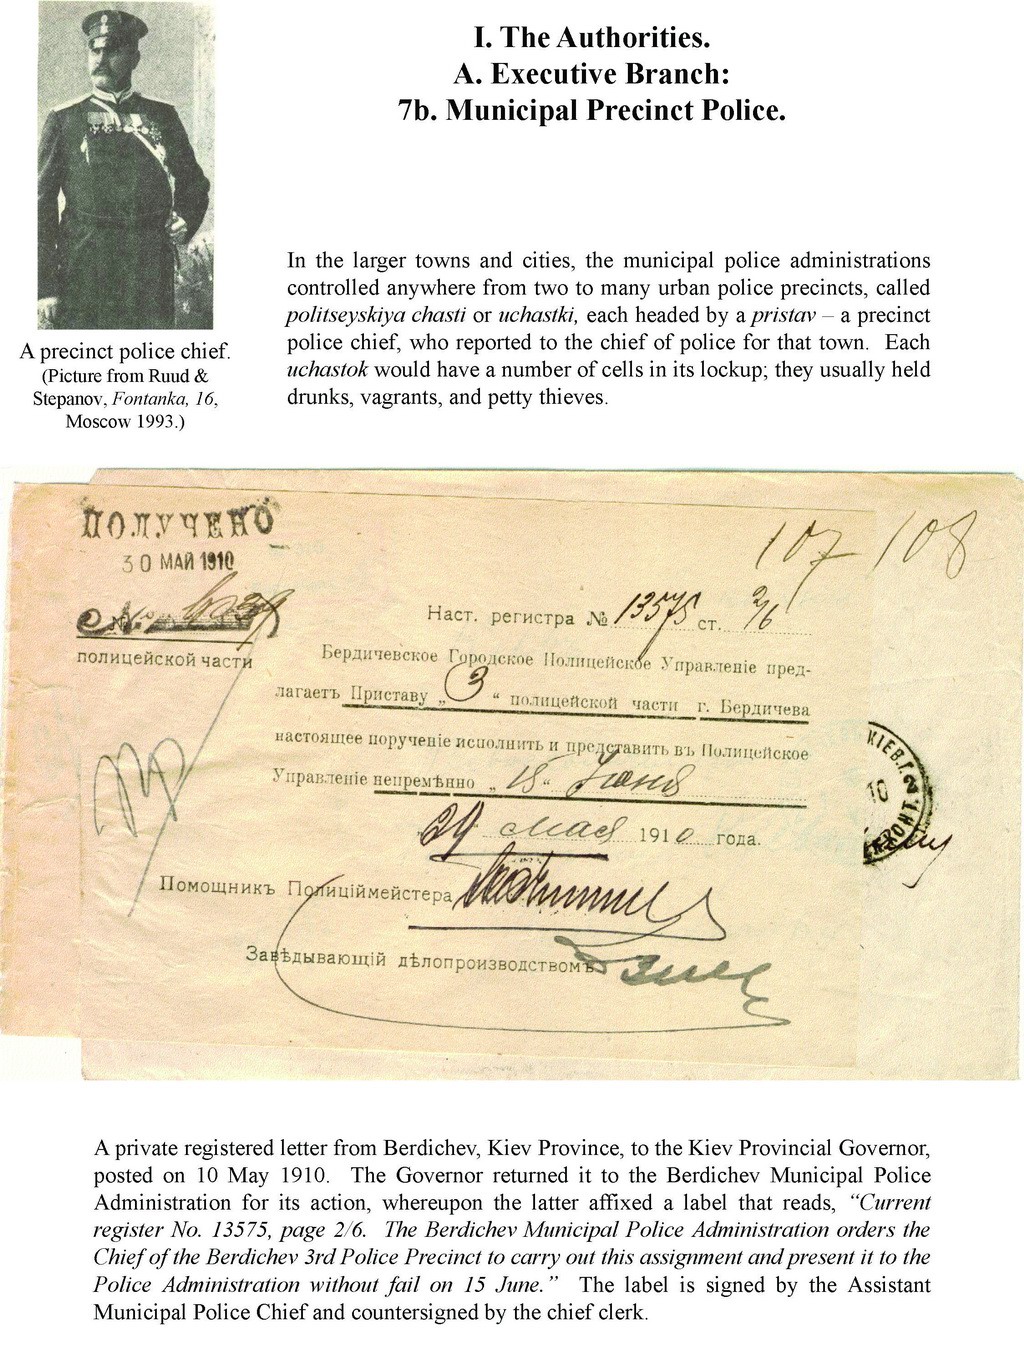 I. The Authorities.
A. Executive Branch:
7b. Municipal Precinct Police.
In the larger towns and cities, the municipal police administrations
controlled anywhere from two to many urban police precincts, called
politseyskiya chasti or uchastki, each headed by a pristav – a precinct
police chief, who reported to the chief of police for that town. Each
uchastok would have a number of cells in its lockup; they usually held
drunks, vagrants, and petty thieves.
A precinct police chief.
(Picture from Ruud &
Stepanov, Fontanka, 16,
Moscow 1993.)
ПОЛУЧЕНО
30 МАЙ 1910
полицейской части
107 / 108
Наст. регистра № 13575 ст. 2/6
Бердичевское Городское Полицейское Управленіе пред-
лагаетъ Приставу „ 3 “ полицейской части г. Бердичева
настоящее порученіе исполнить и представить въ Полицейское
Управленіе непремѣнно „ 15 “ Июня
29 Мая 1910 года.
Помощникъ Полиціймейстера
Завѣдывающій дѣлопроизводствомъ
КІЕВ. Г. 2
10
A private registered letter from Berdichev, Kiev Province, to the Kiev Provincial Governor,
posted on 10 May 1910. The Governor returned it to the Berdichev Municipal Police
Administration for its action, whereupon the latter affixed a label that reads, “Current
register No. 13575, page 2/6. The Berdichev Municipal Police Administration orders the
Chief of the Berdichev 3rd Police Precinct to carry out this assignment and present it to the
Police Administration without fail on 15 June.” The label is signed by the Assistant
Municipal Police Chief and countersigned by the chief clerk.